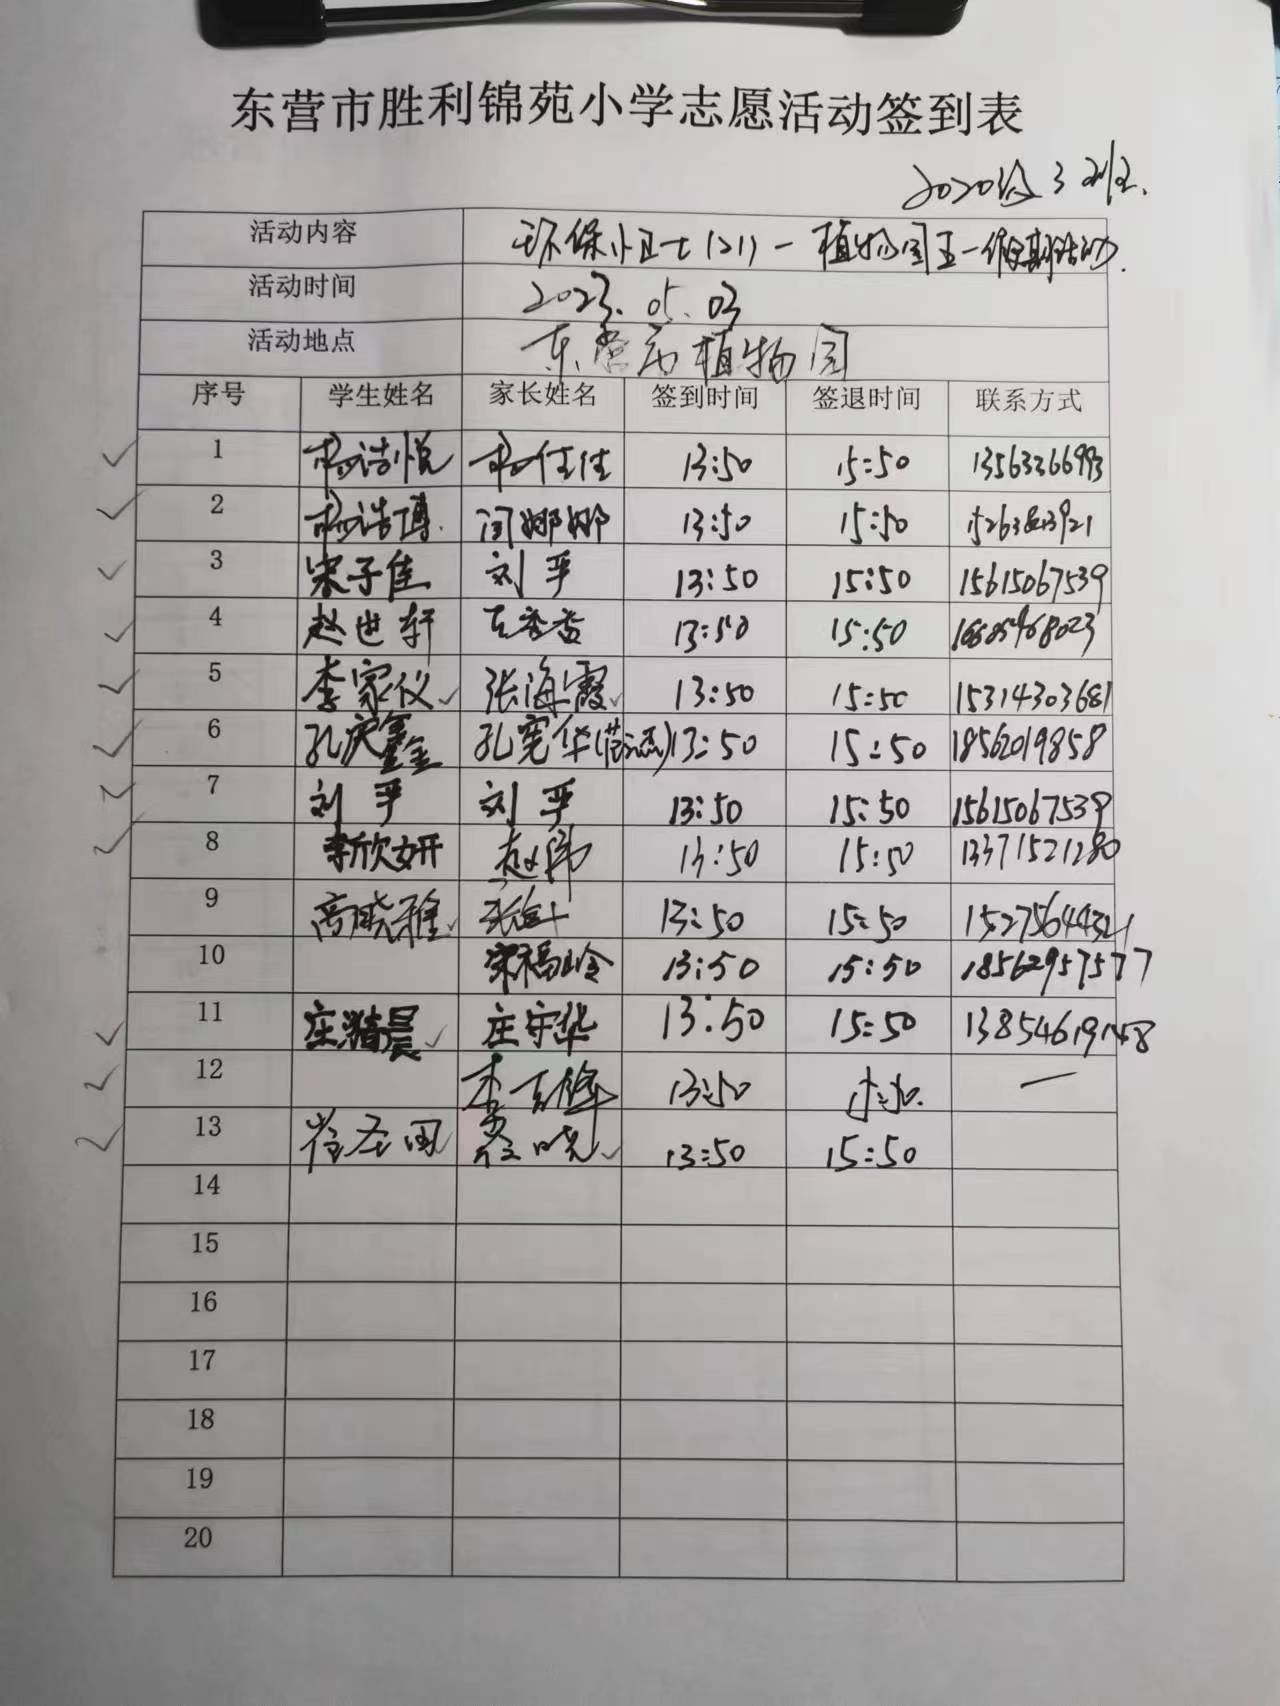 东营市胜利锦苑小学志愿活动签到表
2020级3班.
活动内容 环保小卫士(21)一植物园五一假期活动.
活动时间 2023.05.03
活动地点 东营市植物园
序号 学生姓名 家长姓名 签到时间 签退时间 联系方式
1 杨浩悦 杨佳佳 13:50 15:50 13563366993
2 杨浩博. 闫娜娜 13:50 15:50
3 宋子佳 刘平 13:50 15:50 15615067539
4 赵世轩 13:50 15:50
5 李家仪 张海霞 13:50 15:50 15314303681
6 孔庆鑫 孔宪华 13:50 15:50 18562019858
7 刘平 刘平 13:50 15:50 15615067539
8 李欣妍 赵伟 13:50 15:50 13371521280
9 高晓雅 13:50 15:50
10 宋福岭 13:50 15:50 18562957577
11 庄守华 13:50 15:50
12 13:50
13 13:50 15:50
14
15
16
17
18
19
20